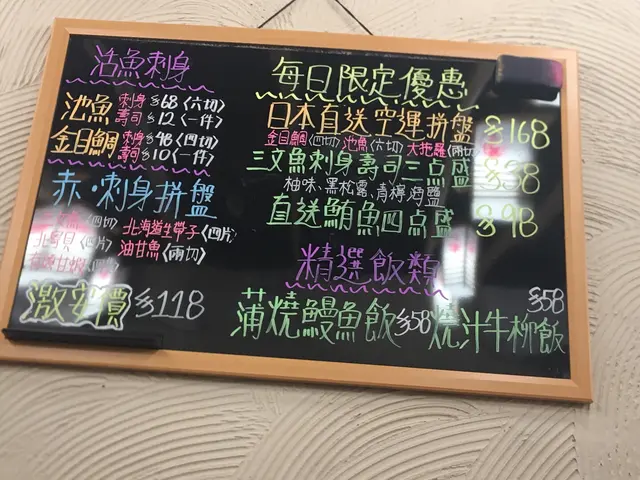 活魚刺身
池魚 刺身 $68〈六切〉
壽司 $12〈一件〉
金目鯛 刺身 $48〈四切〉
壽司 $10〈一件〉
赤·刺身拼盤
三文魚〈四切〉 北海道生帶子〈四片〉
北寄貝〈四片〉 油甘魚〈兩切〉
甘蝦
激安價 $118
每日限定優惠
日本直送空運拼盤 $168
金目鯛〈四切〉 池魚〈六切〉 大拖羅〈兩切〉
三文魚刺身壽司三点盛 $58
柚味、黑松露、青檸海鹽
直送鮪魚四点盛 $98
精選飯類
蒲燒鰻魚飯 $58 燒汁牛柳飯 $58